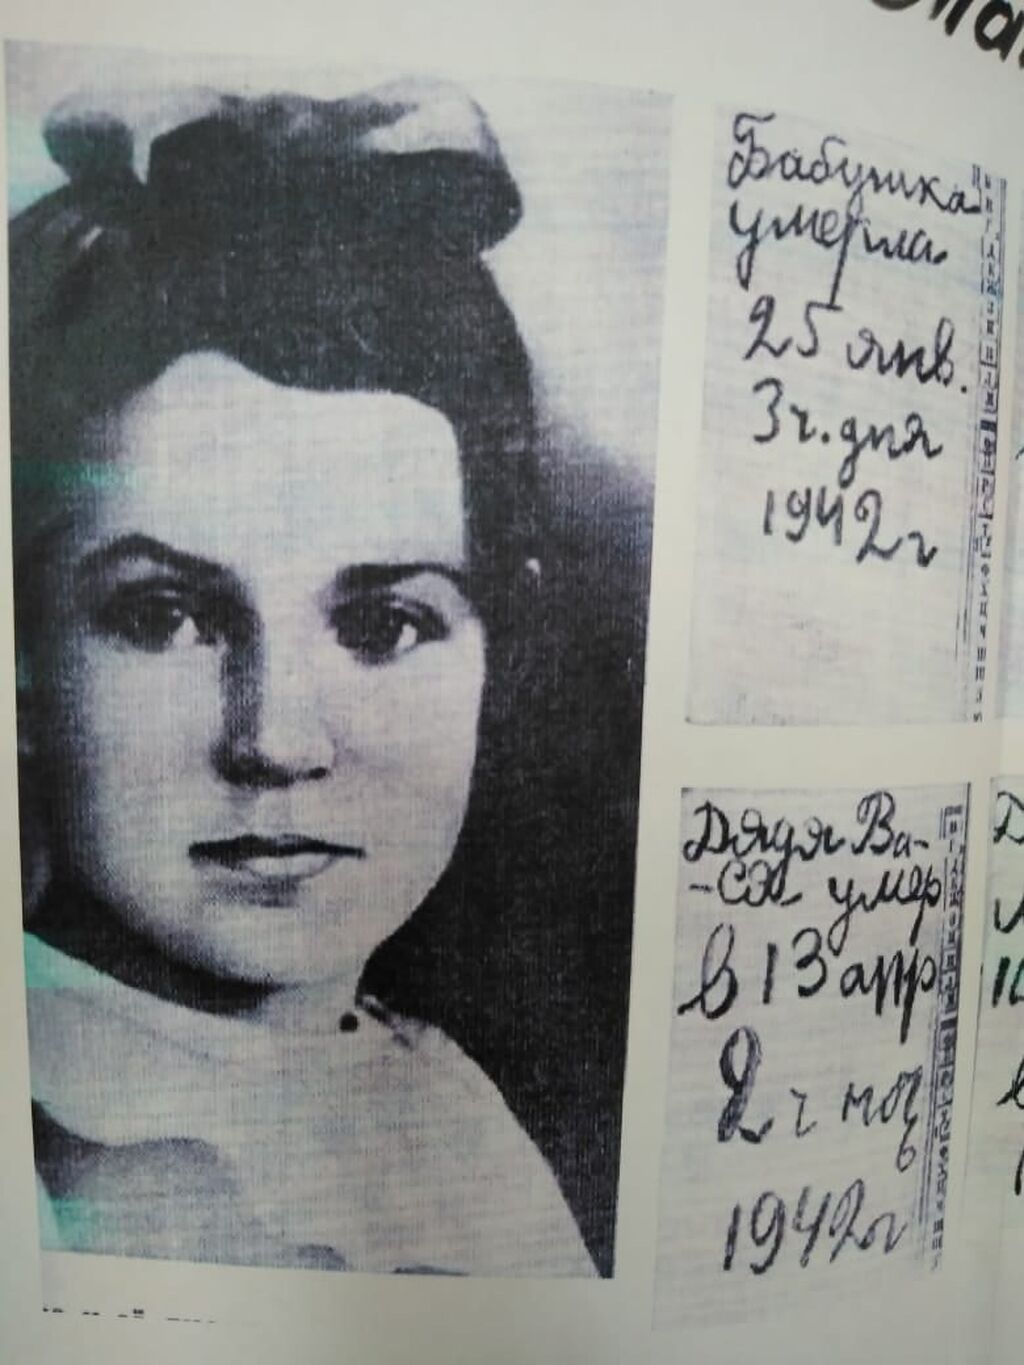 Бабушка
умерла.
25 янв.
3 ч. дня
1942 г
Дядя Ва-
-ся умер
в 13 апр
2 ч ночь
1942 г